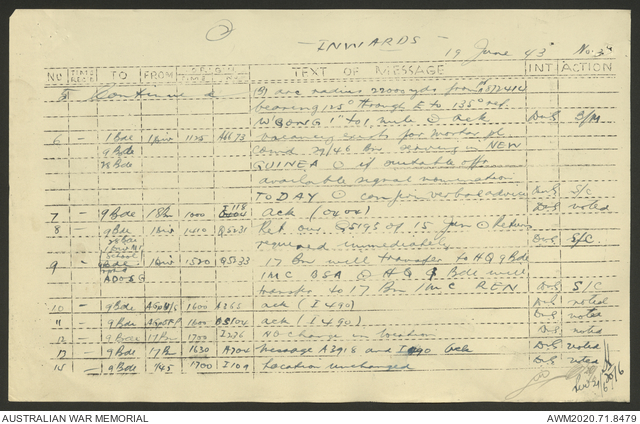 INWARDS
19 June 43 No. 3
NO TIME RECD TO FROM ORIGIN TIME TEXT OF MESSAGE INT ACTION
5 Continued (B) arc radius 22000 yds from
bearing 125° through E to 135° ref.
WGONG 1" to 1 mile ack DvG B/M
6 1 Bde 1 Div 1125 vacancy exists for mortar pl
9 Bde comd 29/46 Bn serving in NEW
28 Bde GUINEA if suitable offr
available signal nomination
TODAY confirm verbal advice DvG S/C
7 9 Bde 18 Bn 1000 I 118 ack (0404) DvG noted
8 9 Bde 1 Div 1410 Q5231 Ref our Q5195 of 15 Jun Return
28 Bde required immediately DvG S/C
9 9 Bde 1 Div 1520 Q5233 17 Bn will transfer to HQ 9 Bde
ADOS G 1 MC BSA HQ 9 Bde will
transfer to 17 Bn 1 MC REN DvG S/C
10 9 Bde 1600 A255 ack (I 490) DvG noted
11 9 Bde 1600 ack (I 490) DvG noted
12 9 Bde 17 Bn 1700 I 376 No change in location DvG noted
13 9 Bde 17 Bn 1630 A704 Message A3918 and Ack DvG noted
14 9 Bde 945 1700 I 109 Location unchanged DvG noted
AUSTRALIAN WAR MEMORIAL AWM2020.71.8479